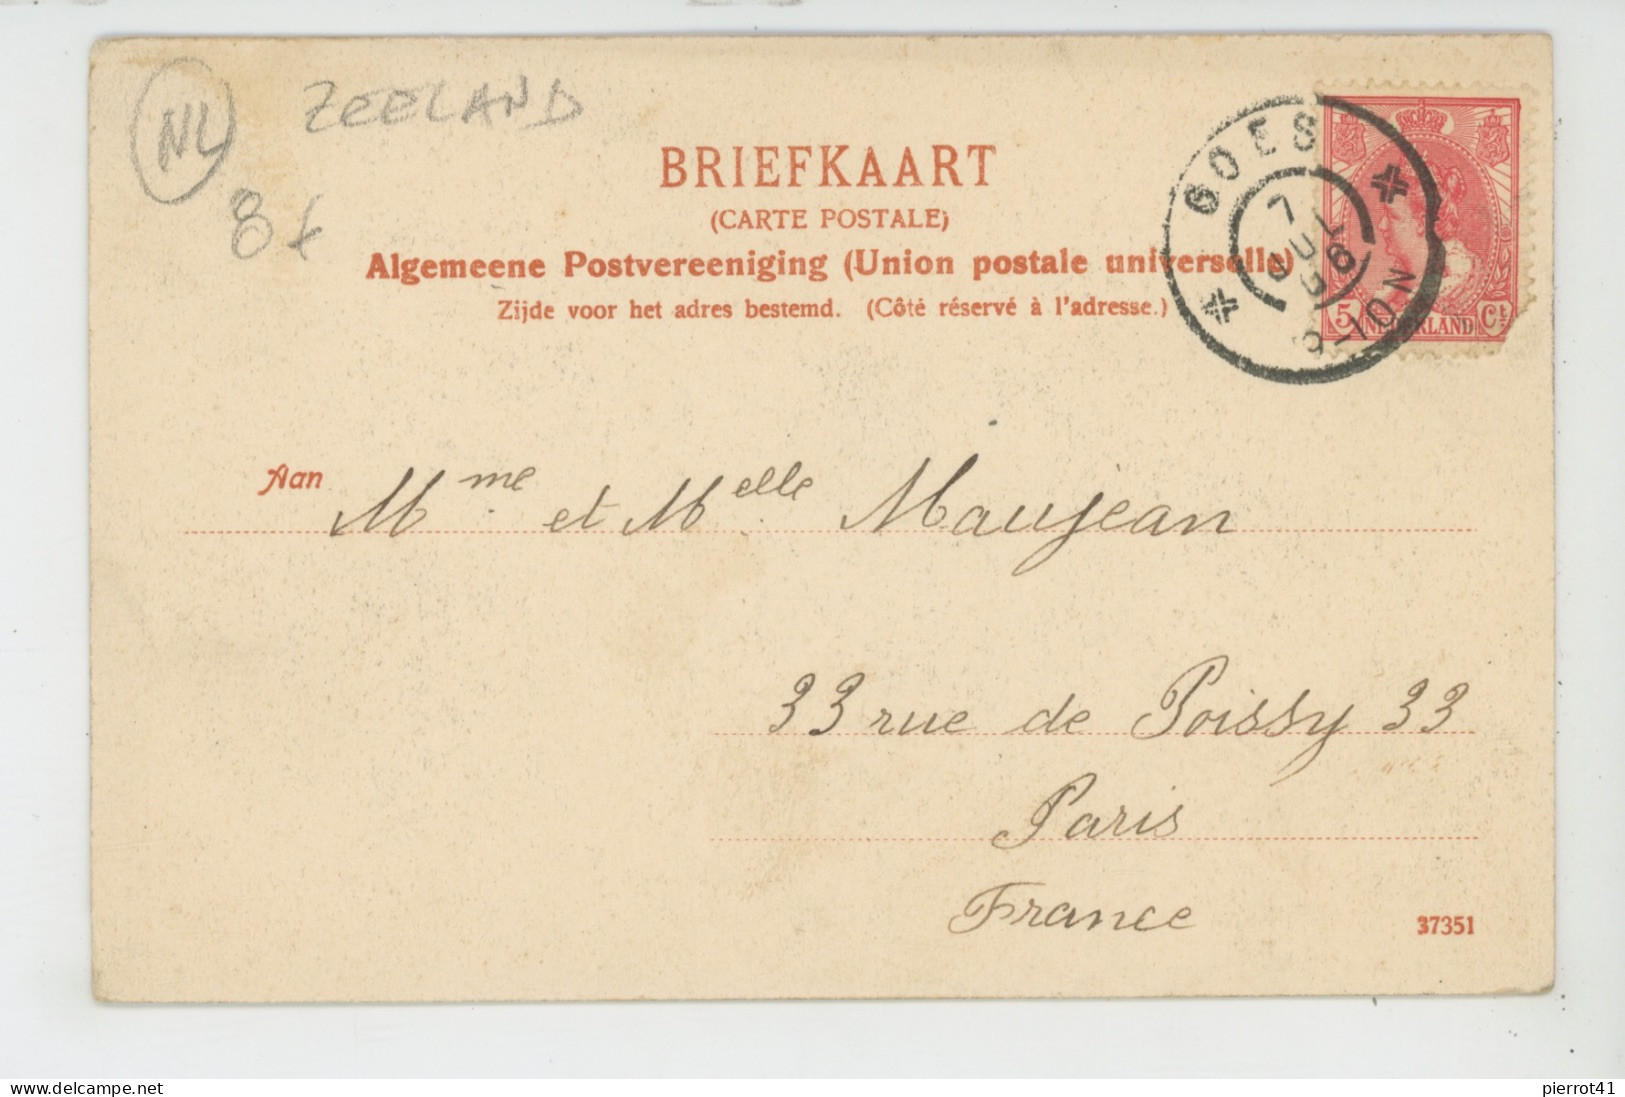 NL
ZEELAND
BRIEFKAART
(CARTE POSTALE)
Algemeene Postvereeniging (Union postale universelle)
Zijde voor het adres bestemd. (Côté réservé à l'adresse.)
GOES
7 JUL
9-10N
5 NEDERLAND Ct
Aan Mme et Melle Maujean
33 rue de Poissy 33
Paris
France
37351
delcampe.net
pierrot41